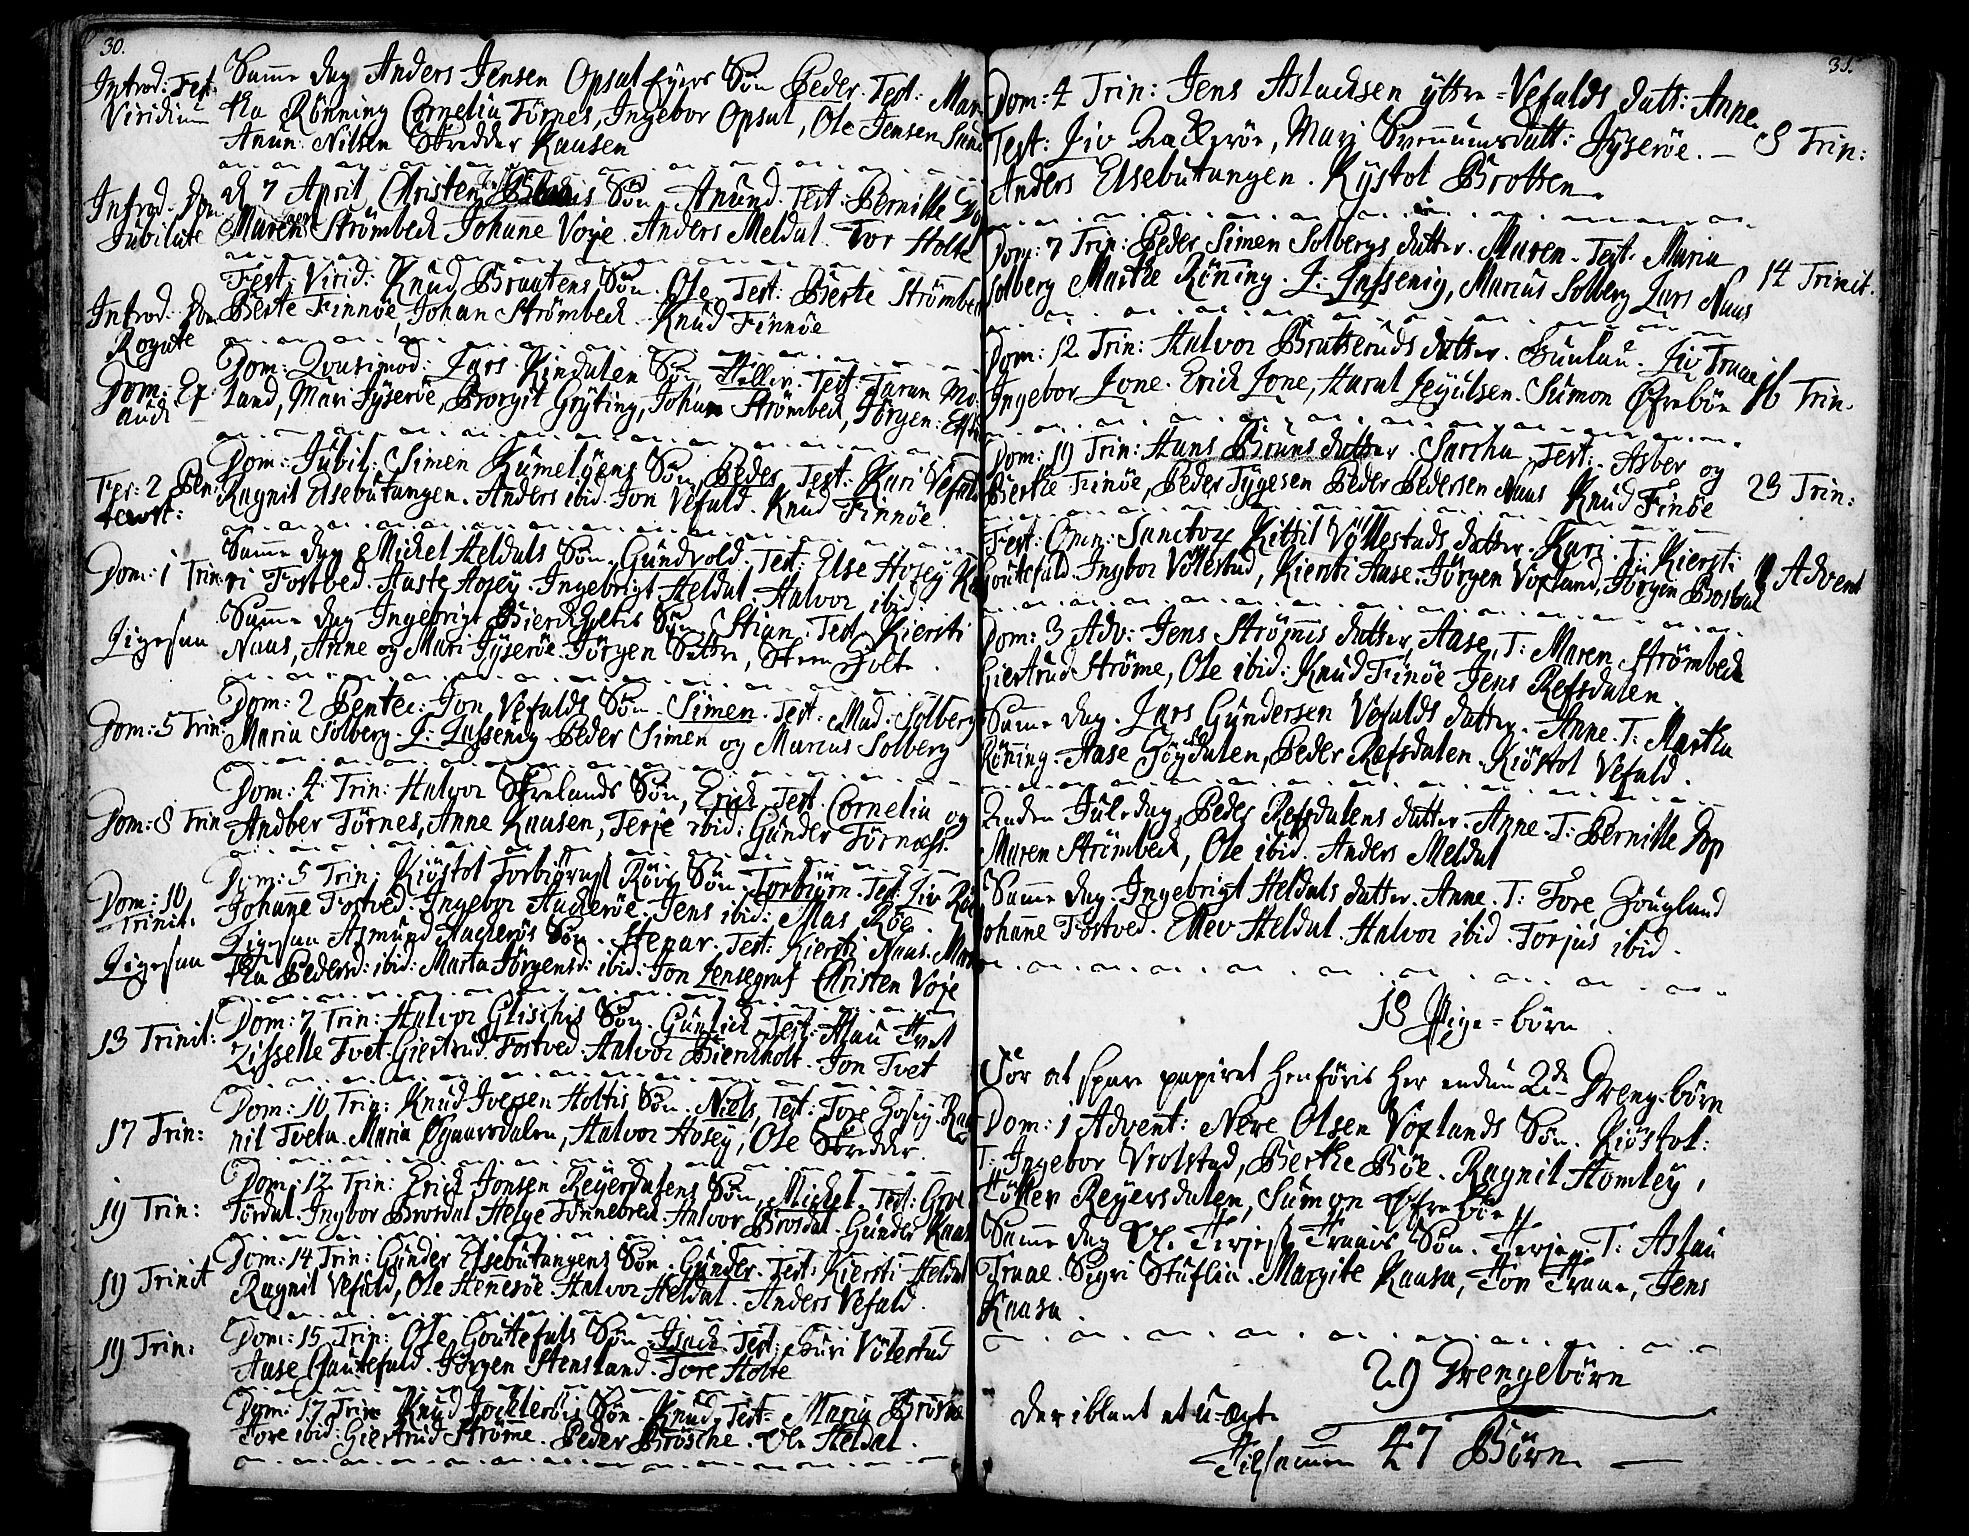 30.
Introd: Fest: Viridium
Samme dag Anders Jensen Opsal Eyers Sön Peder. Test: Mar-
tha Rönning Cornelia Törnes, Ingebor Opsal, Ole Jensen
Anun Nilsen Skredder Kaasen
Introd. Dom. Jubilate
d. 7 April Christen Sön Anund. Test: Pernille
Maren Strömbeck Johanne Voje. Anders Meldal. Tor Holte
Introd. Dom Rogate
Fest: Virid: Knud Braatens Sön Ole Test: Berte Strömbeck
Berte Finnöe, Johan Strömbeck. Knud Finnöe
Dom: Exaudi
Dom: Qvasimod: Lars Kindalen Sön, Test: Taran Mo-
land, Mari Fyseröe, Borgil Gryting, Johan Strömbeck, Jörgen
Fer: 2 Pentecost:
Dom: Jubil: Simen Kumelyens Sön Peder, Test: Kari Vefald
Ragnil Elsebutangen. Anders ibid. Jon Vefald. Knud Finnöe.
Dom: 1 Trin:
Samme dag Mickel Heldals Sön. Gundvold. Test: Else Hosey Ka-
ri Fostved. Aaste Hosey. Ingebrigt Heldal. Halvor ibid.
Ligesaa
Samme dag Ingebrigt Bierckholtis Sön Stian. Test. Kiersti
Naas, Anne og Mari Fyseröe. Jörgen Settre, Steen Holte.
Dom: 5 Trin:
Dom: 2 Pentec: Jon Vefalds Sön. Simen. Test: Mad: Solberg
Maria Solberg. L: Lassenig Peder Simen og Marius Solberg
Dom: 8 Trin
Dom: 4 Trin: Halvor Skrelands Sön, Erick, Test. Cornelia og
Andber Törnes, Anne Kaasen, Terje ibid: Gunder Törnæss.
Dom: 10 Trinit:
Dom: 5 Trin: Kiöstol Torbiörnss. Röes Sön Torbiörn. Test: Liv Röe
Johanne Fostved. Ingebor Aackeröe. Jens ibid: Mas Röe.
Ligesaa
Ligesaa Asmund Aackeröes Sön. Stenar. Test: Kiersti Naas. Mar-
tha Pedersd: ibid: Marta Jörgensd: ibid: Jon Lensegraf Christen Voje
13 Trinit:
Dom: 7 Trin: Halvor Glischis Sön. Gunlick Test: Aslau Tvet
Zisselle Tvet. Giertrud Fostved. Halvor Bierckholt. Jon Tvet
17 Trin:
Dom: 10 Trin: Knud Iversen Holtis Sön. Niels, Test: Tore Hosey Rag-
nil Tveta. Maria Öygaarsdalen, Halvor Hosey, Ole Skredder.
19 Trin:
Dom: 12 Trin: Erick Jonsen Reyersdalens Sön. Mickel. Test: Groe
Tördal. Ingbor Brosdal Helge Tönnevold. Halvor Brosdal. Gunder Kaas
19 Trinit
Dom: 14 Trin: Gunder Elsebutangens Sön. Gunder. Test: Kiersti Heldal
Ragnil Vefald, Ole Hennesöe. Halvor Heldal. Anders Vefald.
19 Trin:
Dom: 15 Trin: Ole Goutefals Sön Isack Test: Guri Völestad
Aase Gautefald. Jörgen Stensland. Tore Holte
Dom: 17 Trin Knud Jockleröis Sön. Knud. Test: Maria Brösche
Tore ibid: Giertrud Ströme. Peder Brösche. Ole Heldal.
31.
Dom: 4 Trin: Jens Aslacksen ytter-Vefalds datt: Anne
Test: Liv Aackeröe, Mari Svennumsdatt: Fyseröe. 8 Trin:
Anders Elsebutangen. Kystol Brotten.
Dom: 7 Trin: Peder Simen Solbergs datter. Maren. Test. Maria
Solberg Marthe Röning. L: Lassenig, Marius Solberg Lars Naas 14 Trinit.
Dom: 12 Trin: Halvor Bratteruds datter. Gunlau. Liv Traae
Ingebor Lone. Erick Lone, Haral Leyulsen. Simon Öfreböe 16 Trin.
Dom: 19 Trin: Hans Bruns datter. Sarcha Test: Asber og
Berthe Finöe, Peder Tygesen Peder Pedersen Naas Knud Finöe 23 Trin:
Fest: Omn: Sanctor Kittil Völlestads datter. Kari. T: Kiersti
Goutefald. Ingbor Völestad, Kiersti Aase. Jörgen Voxland, Jörgen Bostrak 1 Advent
Dom: 3 Adv: Jens Strömis datter, Aase, T: Maren Strömbeck
Giertrud Ströme, Ole ibid: Knud Finöe Jens Refsdalen.
Samme dag. Lars Gundersen Vefalds datter. Anne. T: Martha
Röning. Aase Göysdalen, Peder Refsdalen. Kiöstol Vefald.
Anden Juledag, Peder Refsdalens datter. Anne. T: Pernille Dop
Maren Strömbeck, Ole ibid. Anders Meldal
Samme dag. Ingebrigt Heldals datter. Anne. T: Tore Hougland
Johanne Fostved. Ellev Heldal. Halvor ibid. Torjus ibid.
18 Pige-börn
For at spare papiret henföris her endnu 2de Dreng-börn
Dom: 1 Advent: Nere Olsen Voxlands Sön. Kiöstol:
T: Ingebor Vrolstad, Berthe Böe. Ragnil Homley,
Tollev Reyersdalen, Simon Öfreböe
Samme dag Ole Terjess. Traais Sön. Terje. T: Aslau
Traae. Sigri Stuflin. Margite Kaasa, Jon Traae, Jens
Kaasa.
29 Drengebörn
Der iblant et u-ægte
Tilsammen 47 Börn